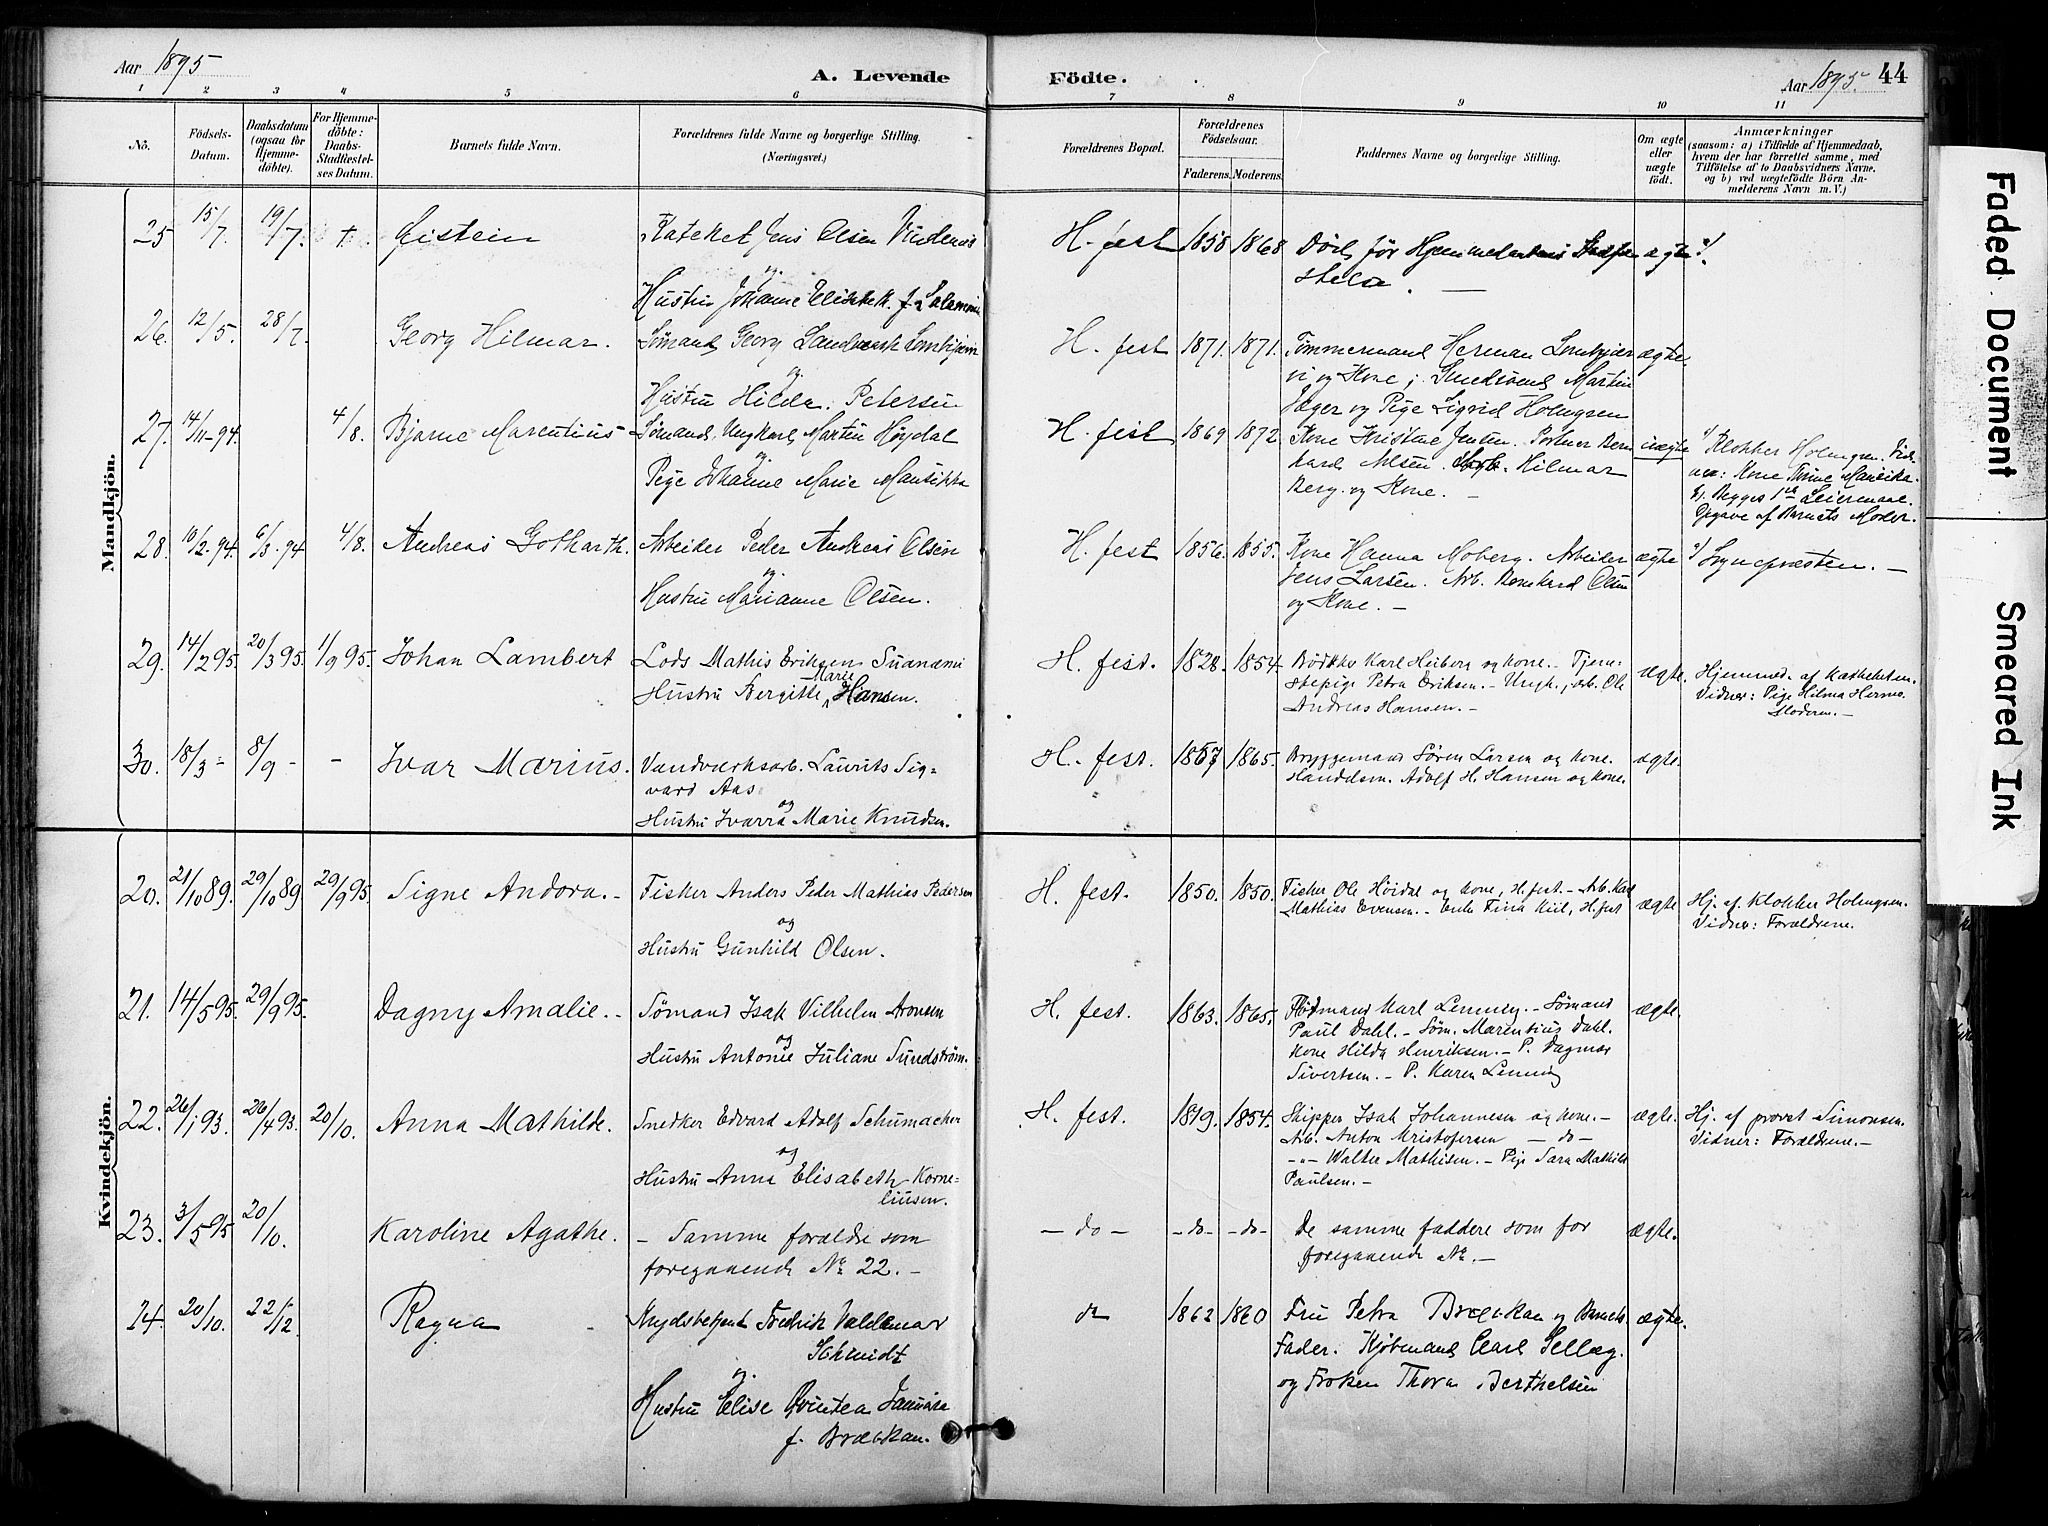 Aar 1895
A. Levende
Födte.
Aar 1895. 44
1 2 3 4 5 6 7 8 9 10 11
No.
Födsels-
Datum.
Daabsdatum
(ogsaa for
Hjemme-
döbte).
For Hjemme-
döbte:
Daabs-
Stadfæstel-
ses Datum.
Barnets fulde Navn.
Forældrenes fulde Navne og borgerlige Stilling.
(Næringsvei.)
Forældrenes Bopæl.
Forældrenes
Födselsaar.
Faderens. Moderens.
Faddernes Navne og borgerlige Stilling.
Om ægte
eller
uægte
födt.
Anmærkninger
(saasom: a) i Tilfælde af Hjemmedaab,
hvem der har forrettet samme, med
Tilföielse af to Daabsvidners Navne.
og b) ved uægtefödte Börn An-
melderens Navn m. V.)
Mandkjön.
25 15/7. 19/7. +. Øistein Kateket Jens Olsen
og
Hustru Johanne Elisabeth f.
H. fest 1858 1868 Død før ægte
26. 12/5. 28/7. Georg Hilmar. Sømand Georg
og
Hustru Hilda Petersen
H. fest 1871. 1871. Tømmermand Herman ægte.
og Kone; Martin
Jæger og Pige Sigrid Holmgren
27. 14/11-94. 4/8. Bjarne Marentius Sømand, Ungkarl Martin Høydal
og
Pige Johanne Marie Mansikka
H. fest 1869 1872 Kone Kristine Jensen. Bern
hard Nilsen. Arb. Hilmar
Berg. og Kone. -
uægte
Klokker Holmgren. Vid-
ner: Kone Mansikka.
b). Begges 1ste Leiermaal.
Opgave af Barnets Moder.
28. 10/2.94. 6/3.94 4/8. Andreas Gotharth. Arbeider Peder Andreas Olsen
og
Hustru Marianne Olsen.
H. fest 1856. 1855. Kone Hanna Moberg. Arbeider
Jens Larsen. Arb. Bernhard Olsen
og Kone. -
ægte a/ Sognepræsten. -
29. 14/2 95. 20/3 95. 1/9 95. Johan Lambert Lods Mathis Eriksen Suanæmi
Hustru Bergitte Marie Hansen.
H. fest. 1828. 1854. Bødker Karl Heiberg og kone. - Tjene-
stepige Petra Eriksen. - Ungk., arb. Ole
Andreas Hansen. -
ægte. Hjemmed. af Kathekheten.
Vidner: Pige Hilma Herma.
Moderen. -
30. 18/3 - 8/9 - - Ivar Marius. Vandværksarb. Laurits Sig-
vard Aas
og
Hustru Ivarra Marie Knudsen.
H. fest. 1867 1865. Bryggemand Sören Larsen og kone.
Handelsm. Adolf H. Hansen og kone.
ægte.
Kvindekjön.
20. 21/10 89. 29/10 89 29/9 95. Signe Andora. - Fisker Anders Peder Mathias Pedersen
og
Hustru Gunhild Olsen.
H. fest. 1850. 1850. Fisker Ole Höidal og kone, H.fest. - Arb. Karl
Mathias Evensen. - Enke Fina Kiil, H.fest
ægte Hj. af Klokker Holmgren.
Vidner: Forældrene.
21. 14/5 95. 29/9 95. Dagny Amalie. - Sömand Isak Vilhelm Aronsen
og
Hustru Antonie Juliane Sundström.
H. fest. 1863. 1865. Karl Lenning. - Sömand
Paul Dahl. - Söm. Marentius Dahl.
Kone Hilda Henriksen. - P. Dagmar
Sivertsen. - P. Karen Lenning
ægte.
22. 26/1 93. 26/4 93. 20/10. Anna Mathilde. Snedker Edvard Adolf Schumacher
og
Hustru Anna Elisabeth Korne-
liussen.
H. fest. 1849. 1854. Skipper Isak Johannesen og kone. -
Arb. Anton Kristofersen - do -
-"- Walter Mathisen. - Pige Sara Mathild
Paulsen. -
ægte. Hj. af provst Simonsen.
Vidner: Forældrene. -
23. 3/5 95 20/10. Karoline Agathe. - Samme forældre som
foregaaende No 22. -
- do - - do - - do - De samme faddere som for
foregaaende No. -
ægte.
24. 20/10. 22/12. Ragna Fredrik Valdemar
Schmidt
og
Hustru Elise
f. Brækkan.
do 1862 1860 Fru Petra Brækkan og Barnets
Fader. Kjøbmand Carl Sellæg.
og Frøken Thora Berthelsen
ægte.
Faded Document
Smeared Ink